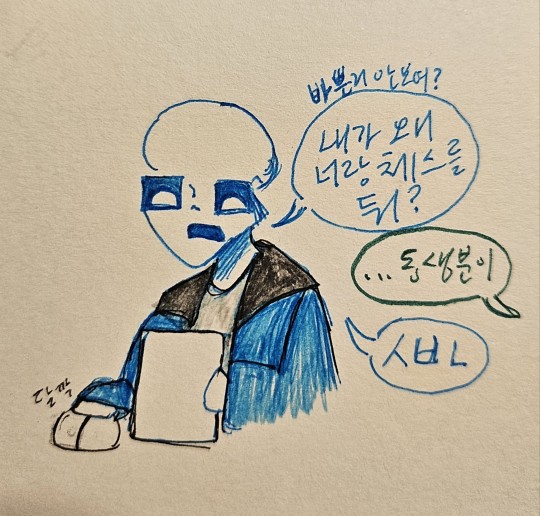 바쁜거 안보여?
내가 왜
너랑 체스를
둬?
...동생분이
ㅅㅂㄴ
달깍